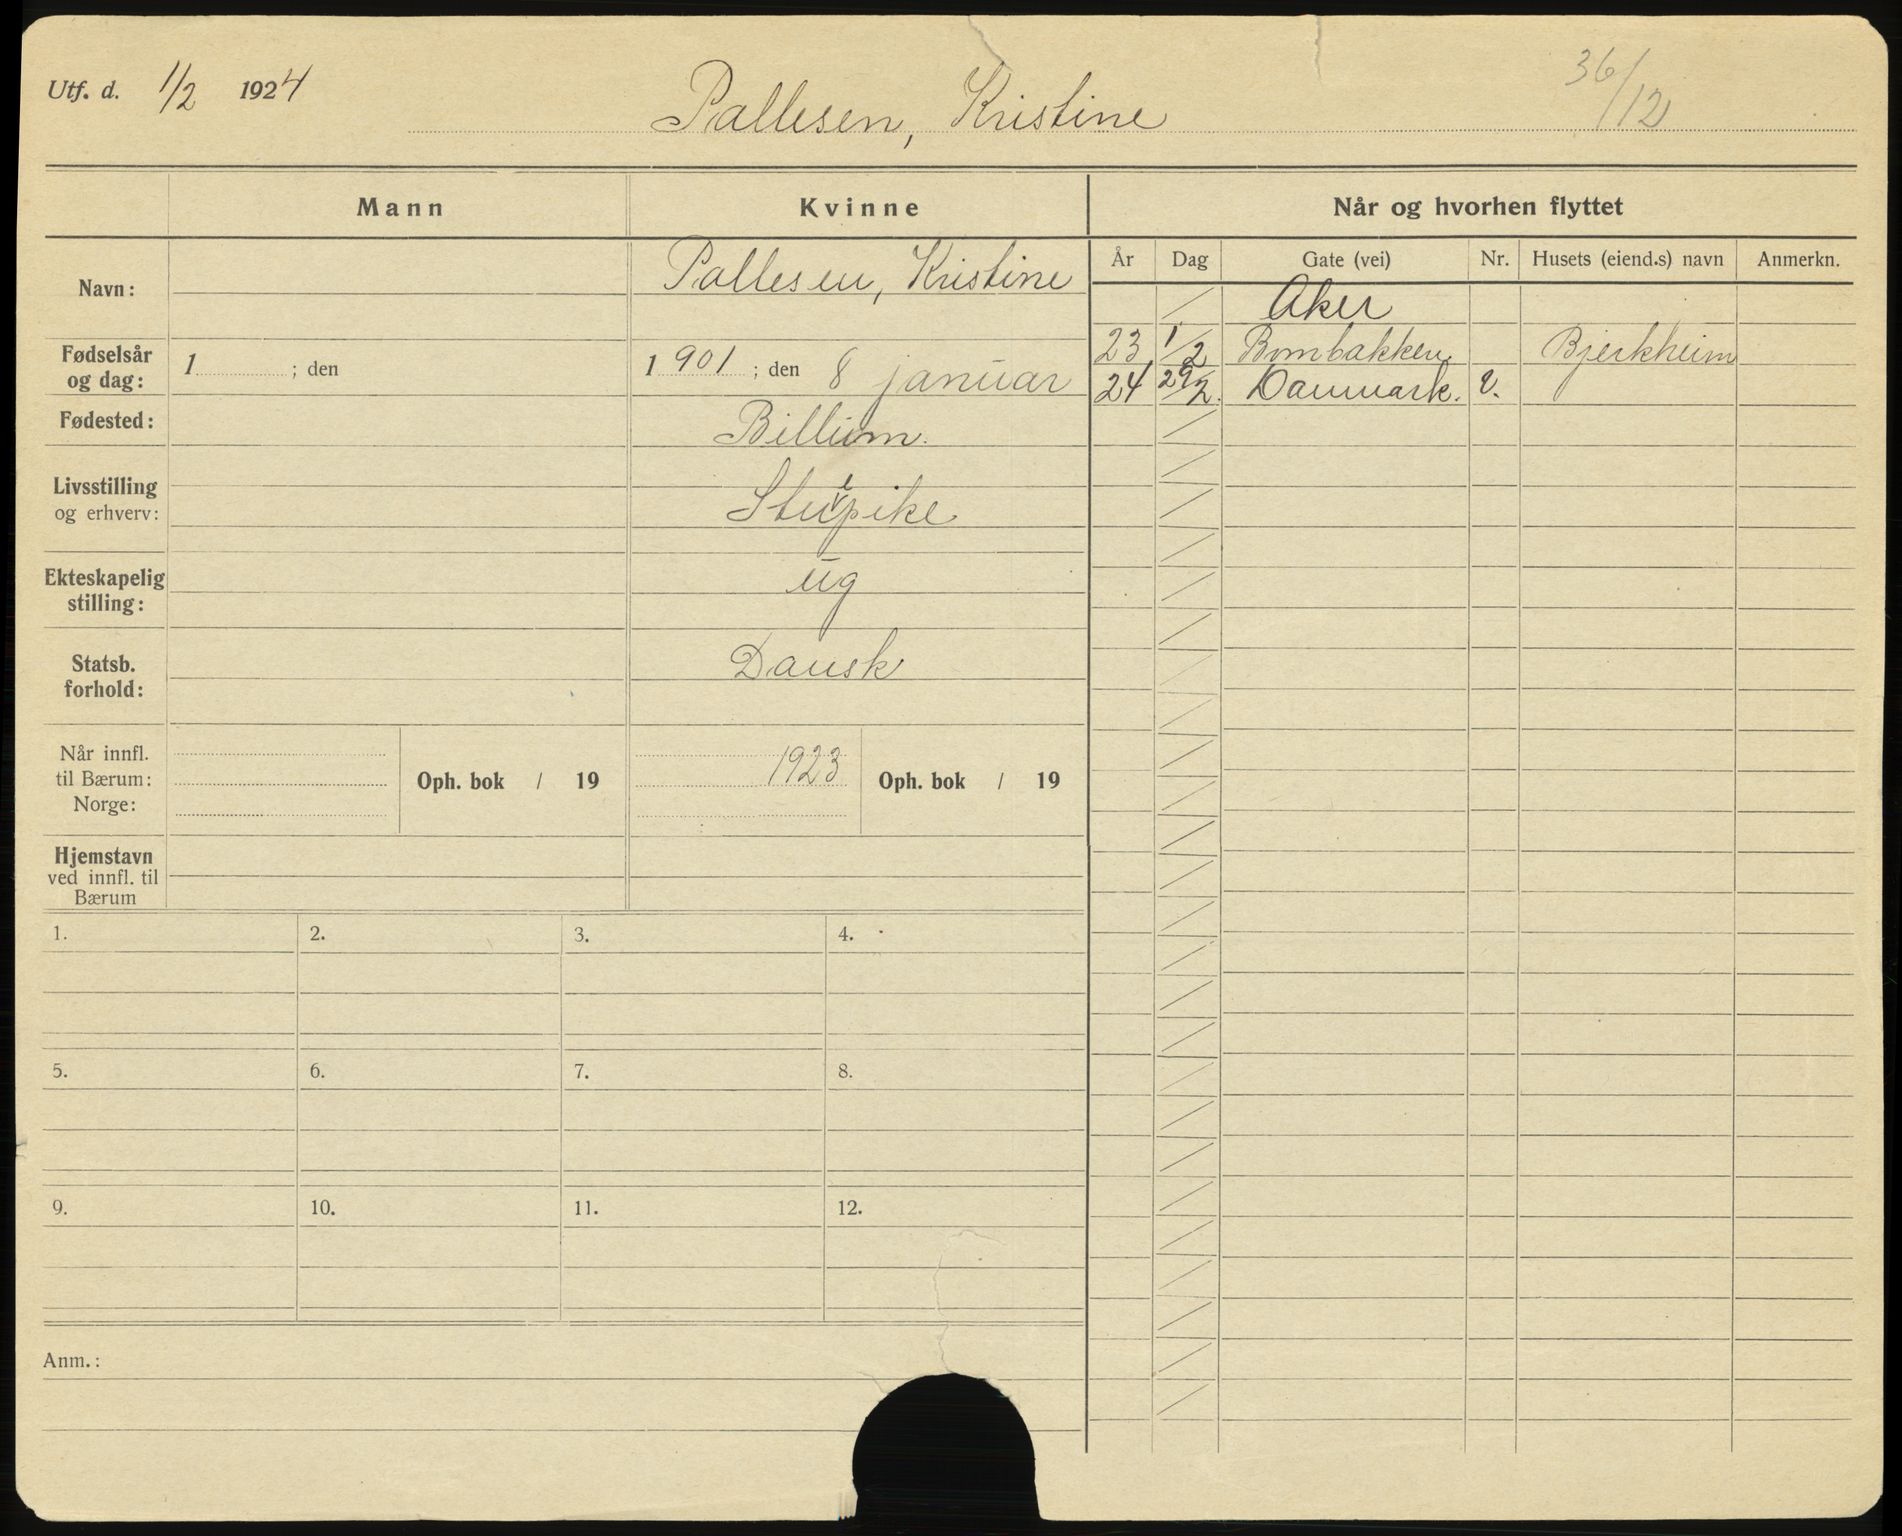 Utf. d. 1/2 1924
Pallesen, Kristine
36/12
Mann Kvinne Når og hvorhen flyttet
År Dag Gate (vei) Nr. Husets (eiend.s) navn Anmerkn.
Navn: Pallesen, Kristine
Aker
Fødselsår og dag: 1 ; den 1 901 ; den 8 januar
23 1/2 Bombakken Bjerkheim
24 29/2. Danmark. v.
Fødested: Billum.
Livsstilling og erhverv: Stuepike
Ekteskapelig stilling: ug
Statsb. forhold: Dansk
Når innfl. til Bærum: Norge: Oph. bok / 19 1923 Oph. bok / 19
Hjemstavn ved innfl. til Bærum
1. 2. 3. 4.
5. 6. 7. 8.
9. 10. 11. 12.
Anm.: